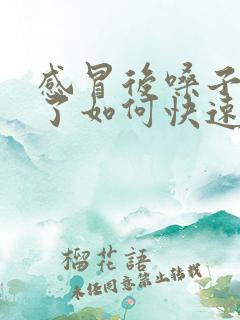 感冒後嗓子
了如何快速
榴花語
未经同意禁止转载